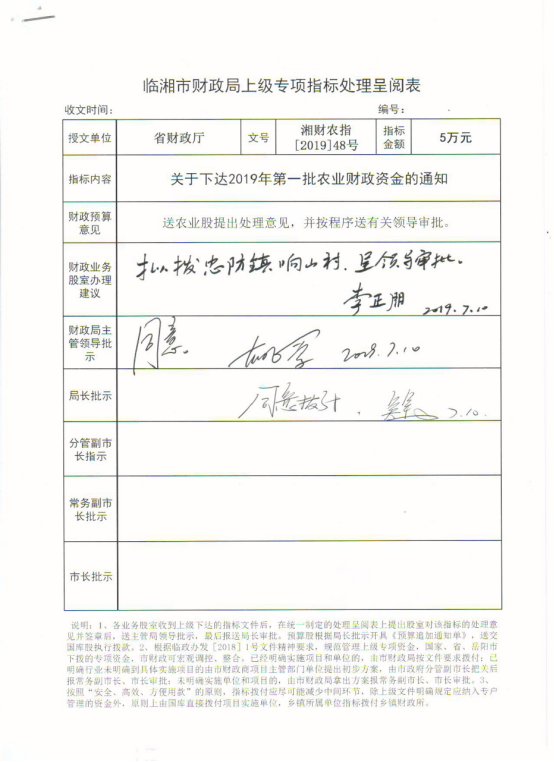 临湘市财政局上级专项指标处理呈阅表
收文时间： 编号：
授文单位 省财政厅 文号 湘财农指[2019]48号 指标金额 5万元
指标内容 关于下达2019年第一批农业财政资金的通知
财政预算意见 送农业股提出处理意见，并按程序送有关领导审批。
财政业务股室办理建议 拟拨忠防镇响山村，呈领导审批。
李正朋 2019.7.10
财政局主管领导批示 同意。 2019.7.10
局长批示 同意拨付， 7.10.
分管副市长指示
常务副市长批示
市长批示
说明：1、各业务股室收到上级下达的指标文件后，在统一制定的处理呈阅表上提出股室对该指标的处理意
见并签章后，送主管局领导批示，最后报送局长审批。预算股根据局长批示开具《预算追加通知单》，送交
国库股执行拨款。2、根据临政办发［2018］1号文件精神要求，规范管理上级专项资金，国家、省、岳阳市
下拨的专项资金，市财政可宏观调控、整合。已经明确实施项目和单位的，由市财政局按文件要求拨付；已
明确行业未明确到具体实施项目的由市财政商项目主管部门单位提出初步方案，由市政府分管副市长把关后
报常务副市长、市长审批；未明确实施单位和项目的，由市财政局拿出方案报常务副市长、市长审批。3、
按照“安全、高效、方便用款”的原则，指标拨付应尽可能减少中间环节，除上级文件明确规定应纳入专户
管理的资金外，原则上由国库直接拨付项目实施单位，乡镇所属单位指标拨付乡镇财政所。